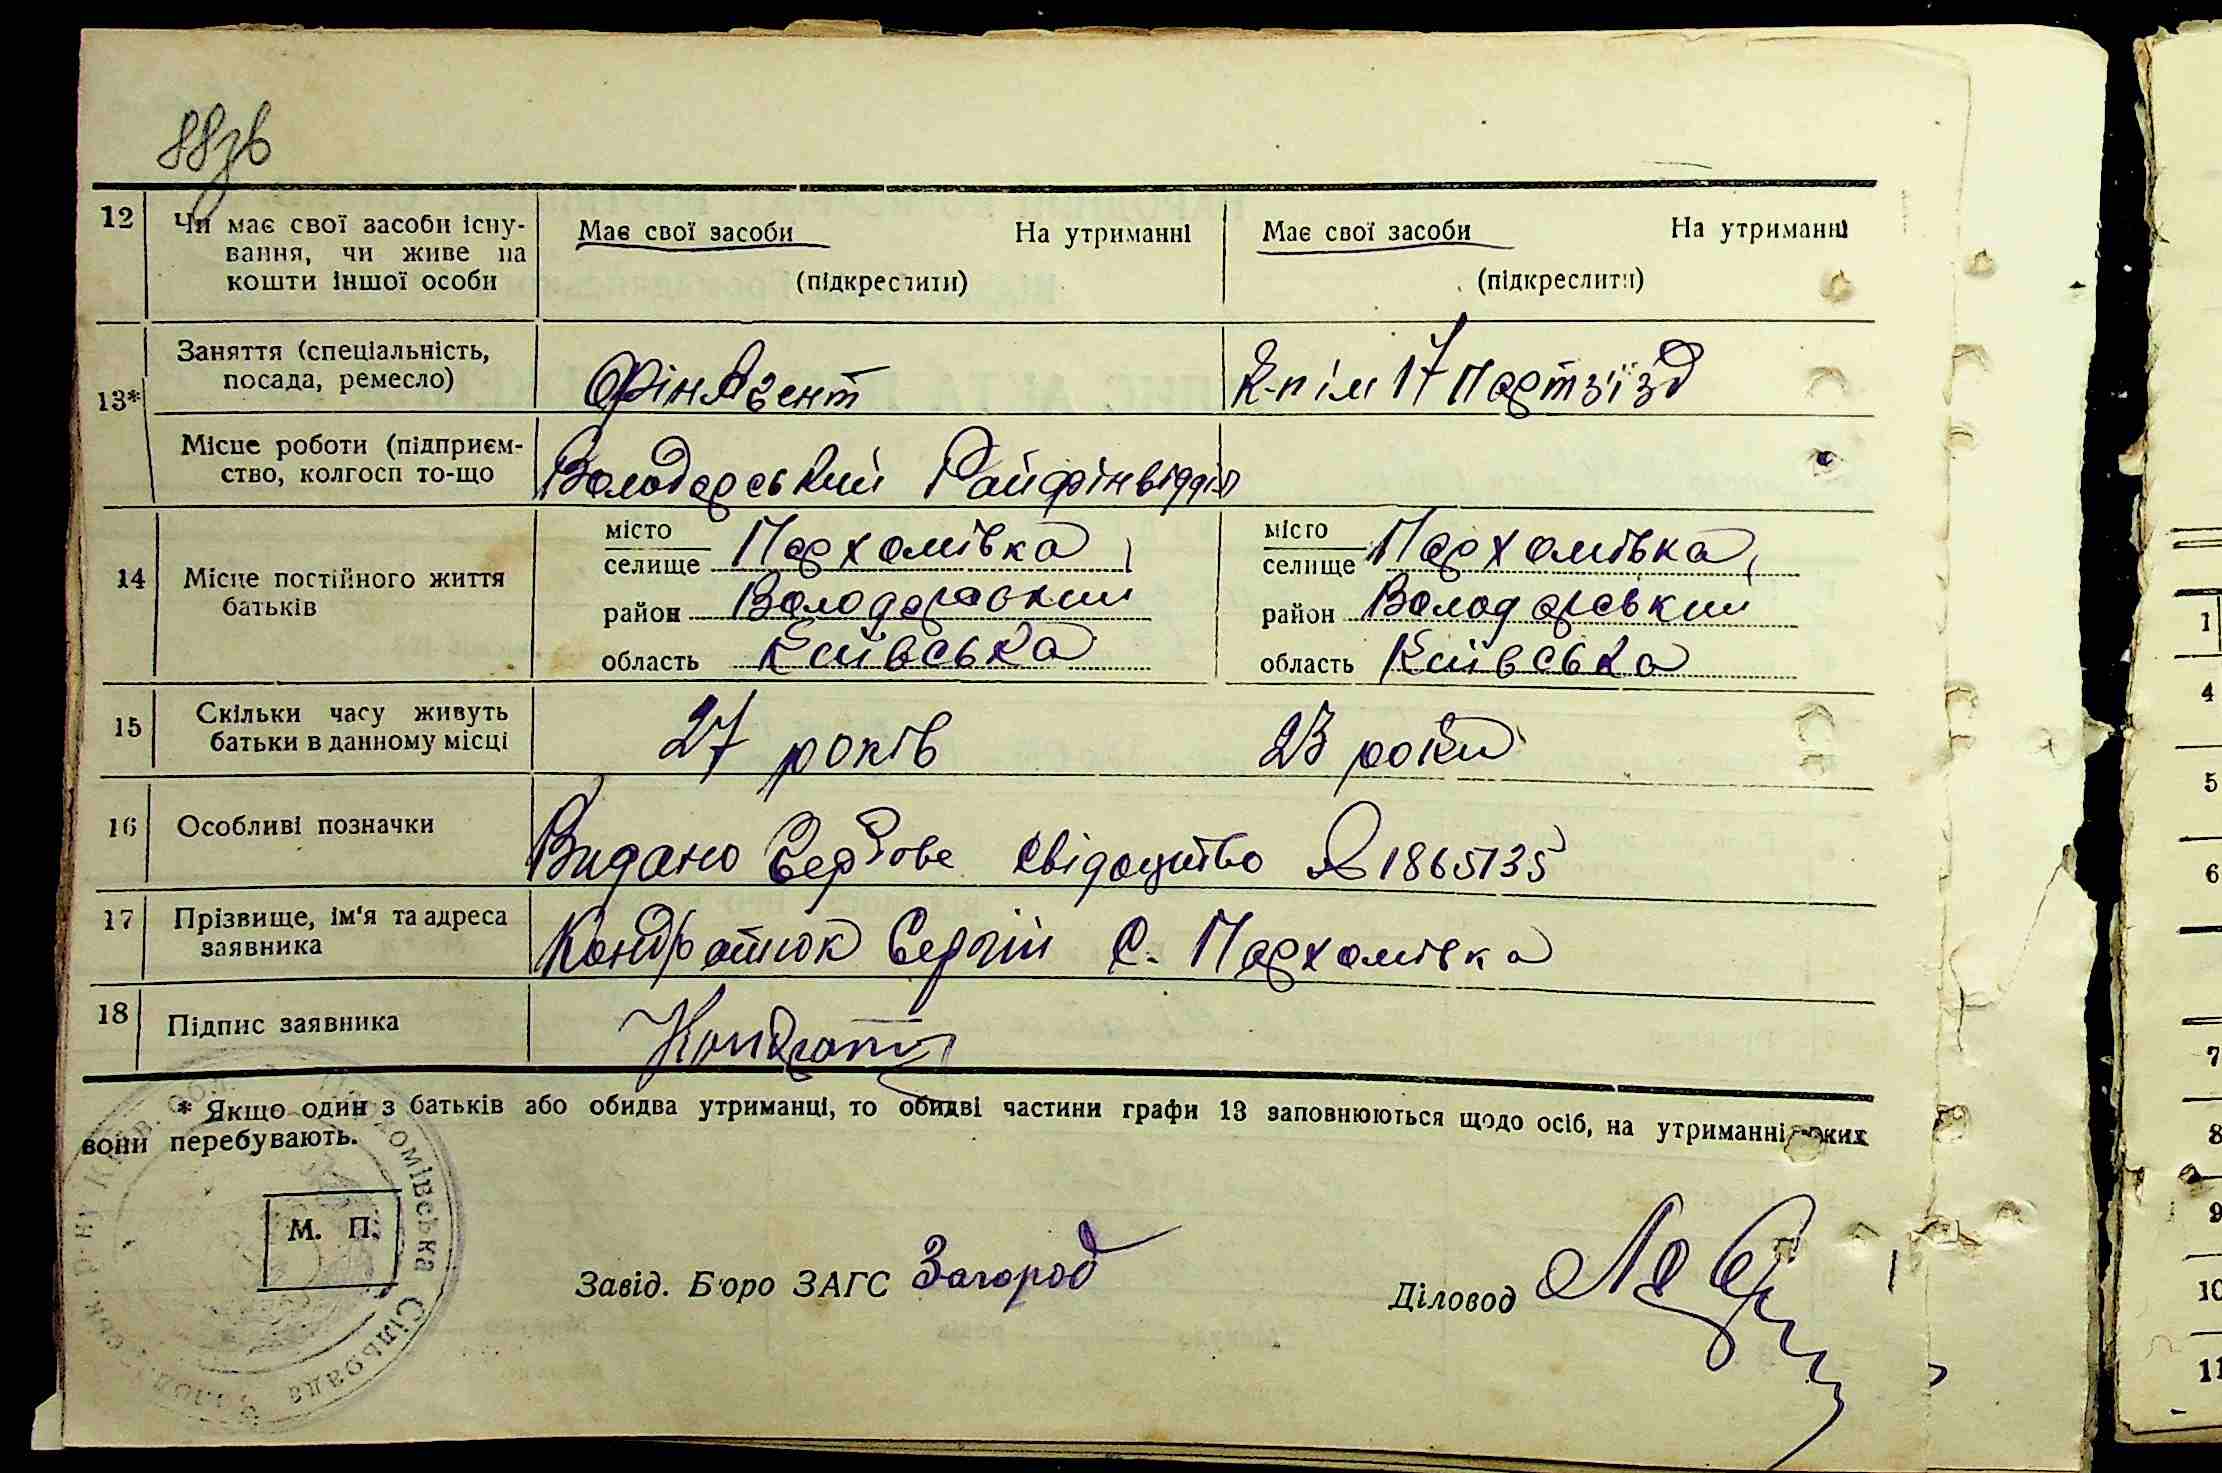 88зв
12 Чи має свої засоби існу- Має свої засоби На утриманні Має свої засоби На утриманні
вання, чи живе на
кошти іншої особи (підкреслити) (підкреслити)
13* Заняття (спеціальність, ФінАгент К-п ім 17 Партз'їзд
посада, ремесло)
Місце роботи (підприєм- Володарський Райфінвідділ
ство, колгосп то-що
14 Місце постійного життя місто Пархомівка, місто Пархомівка,
батьків селище селище
район Володарський район Володарський
область Київська область Київська
15 Скільки часу живуть 27 років 23 роки
батьки в данному місці
16 Особливі позначки Видано свідоцтво 1865135
17 Прізвище, ім'я та адреса Кондратюк Сергій С. Пархомівка
заявника
18 Підпис заявника Кондрат
* Якщо один з батьків або обидва утриманці, то обидві частини графи 13 заповнюються щодо осіб, на утриманні яких
вони перебувають.
М. П.
Пархомівська Сільрада
Завід. Б'юро ЗАГС Загород Діловод
1
4
5
6
7
8
9
10
11